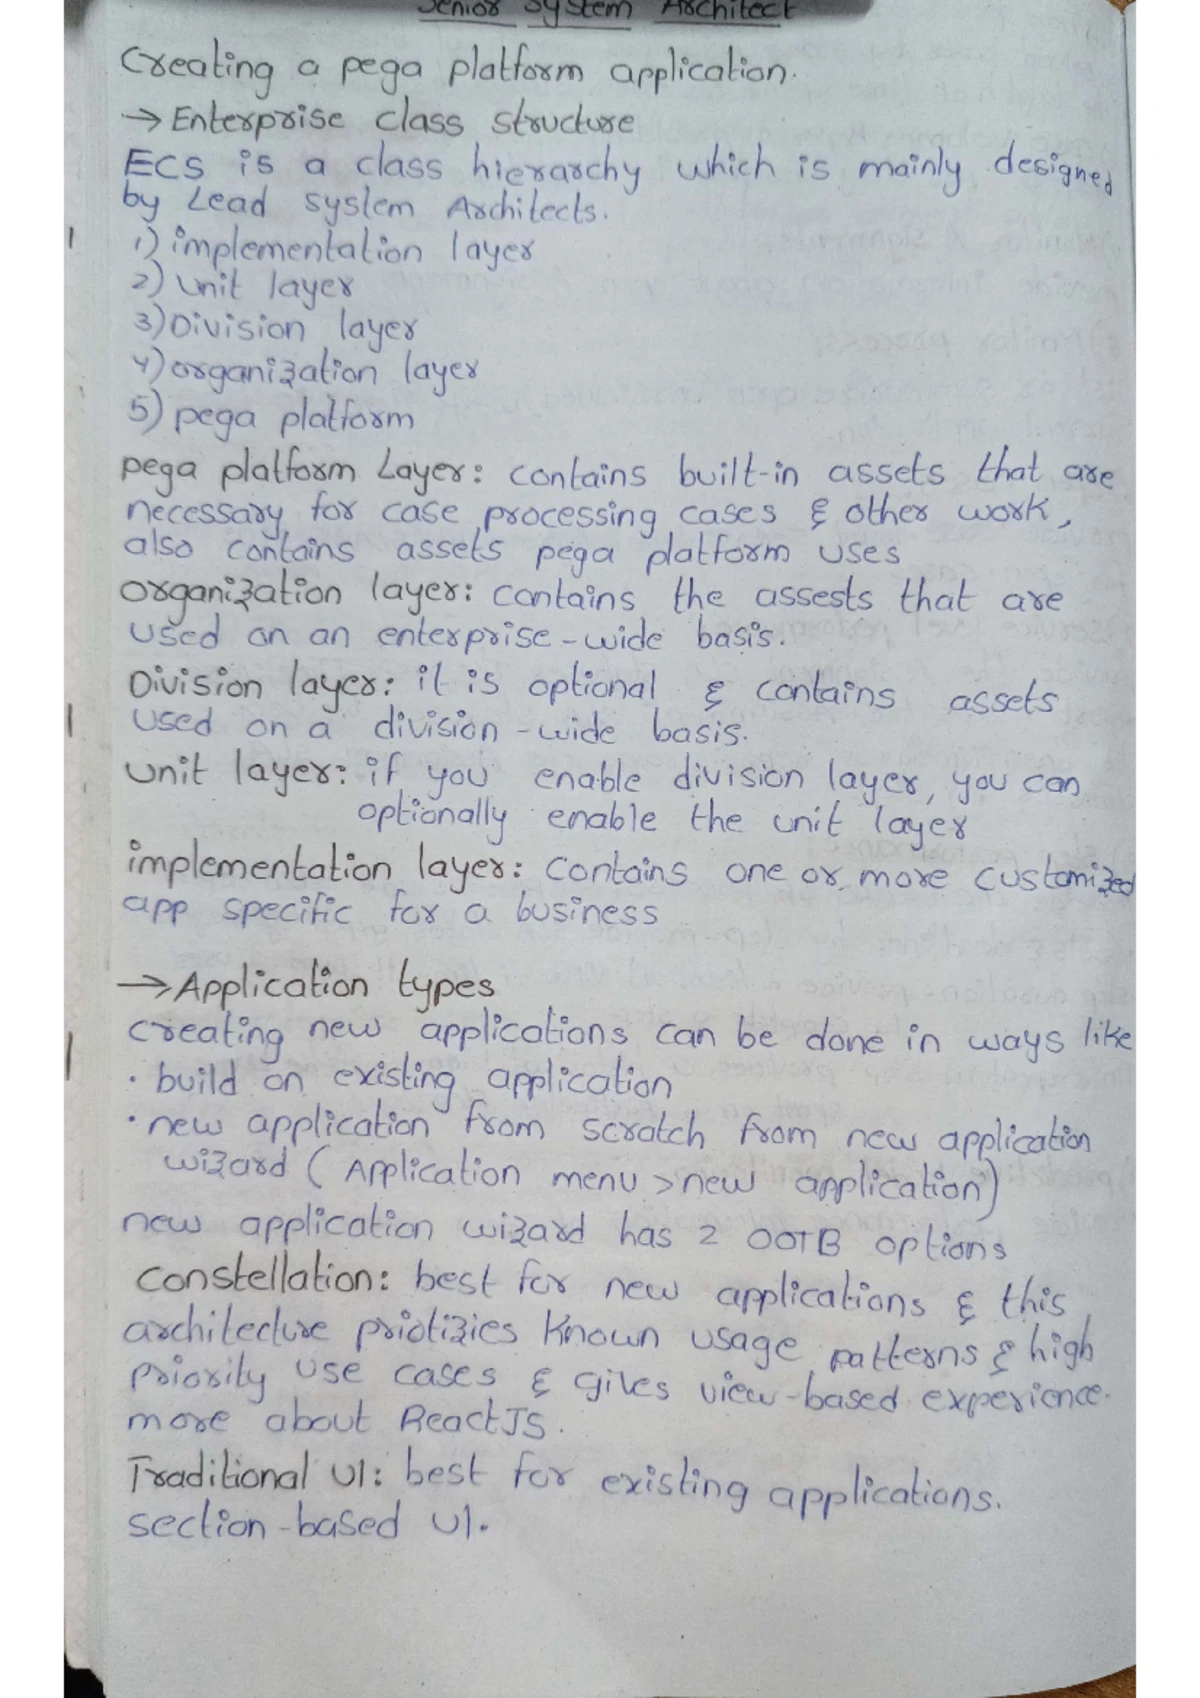 Senior System Architect
Creating a pega platform application.
→ Enterprise class structure
ECS is a class hierarchy which is mainly designed
by Lead system Architects.
1) implementation layer
2) unit layer
3) Division layer
4) organization layer
5) pega platform
pega platform Layer: contains built-in assets that are
necessary for case processing cases & other work,
also contains assets pega platform uses
organization layer: contains the assests that are
used on an enterprise-wide basis.
Division layer: it is optional & contains assets
used on a division-wide basis.
unit layer: if you enable division layer, you can
optionally enable the unit layer
implementation layer: contains one or more customized
app specific for a business
→ Application types
creating new applications can be done in ways like
· build on existing application
· new application from scratch from new application
wizard (Application menu > new application)
new application wizard has 2 OOTB options
Constellation: best for new applications & this
architecture priotizies known usage patterns & high
priority use cases & gives view-based experience.
more about ReactJS.
Traditional UI: best for existing applications.
section-based UI.